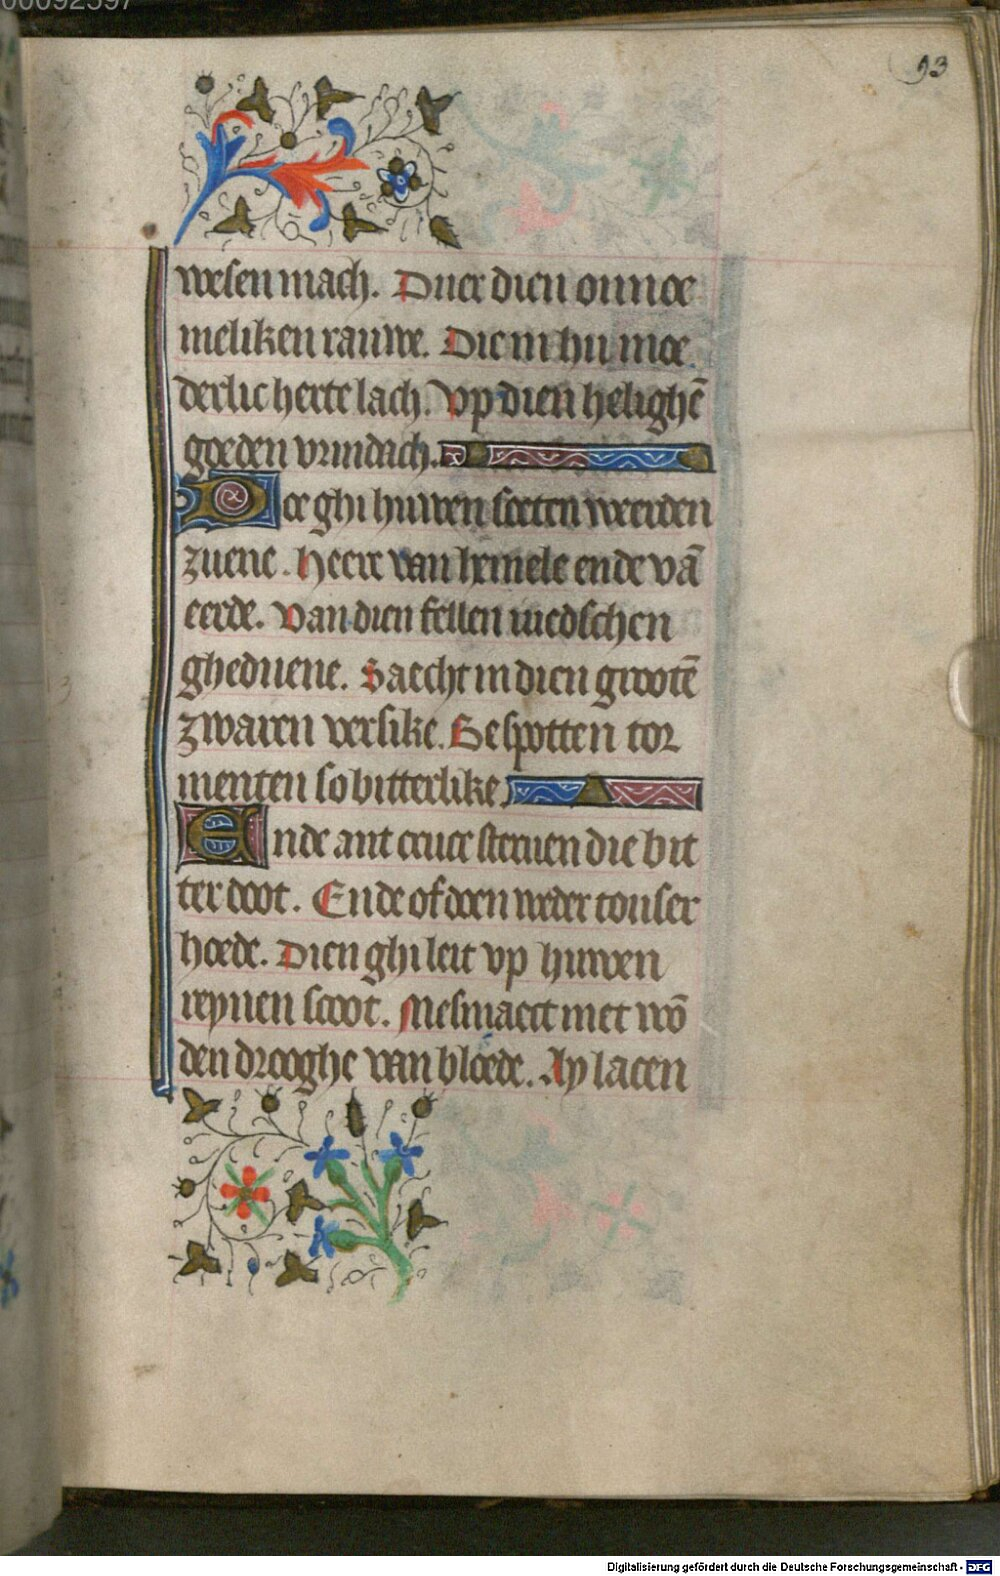 93
wesen mach. Duer dien onnoe
meliken rauwe. Die in hu moe
derlic herte lach. Up dien helighē
goeden vrindach.
Doe ghi huwen soeten weerden
zuene. Heere van hemele ende vā
eerde. Van dien fellen iuedschen
ghediiene. Saecht in dien grootē
zwaren versike. Bespotten tor
menten so bitterlike.
Ende ant cruce steruen die bit
ter doot. Ende of doen neder tonser
hoede. Dien ghi leit up huwen
reynen scoot. Mesmaect met wō
den drooghe van bloede. Ay lacen
Digitalisierung gefördert durch die Deutsche Forschungsgemeinschaft - DFG